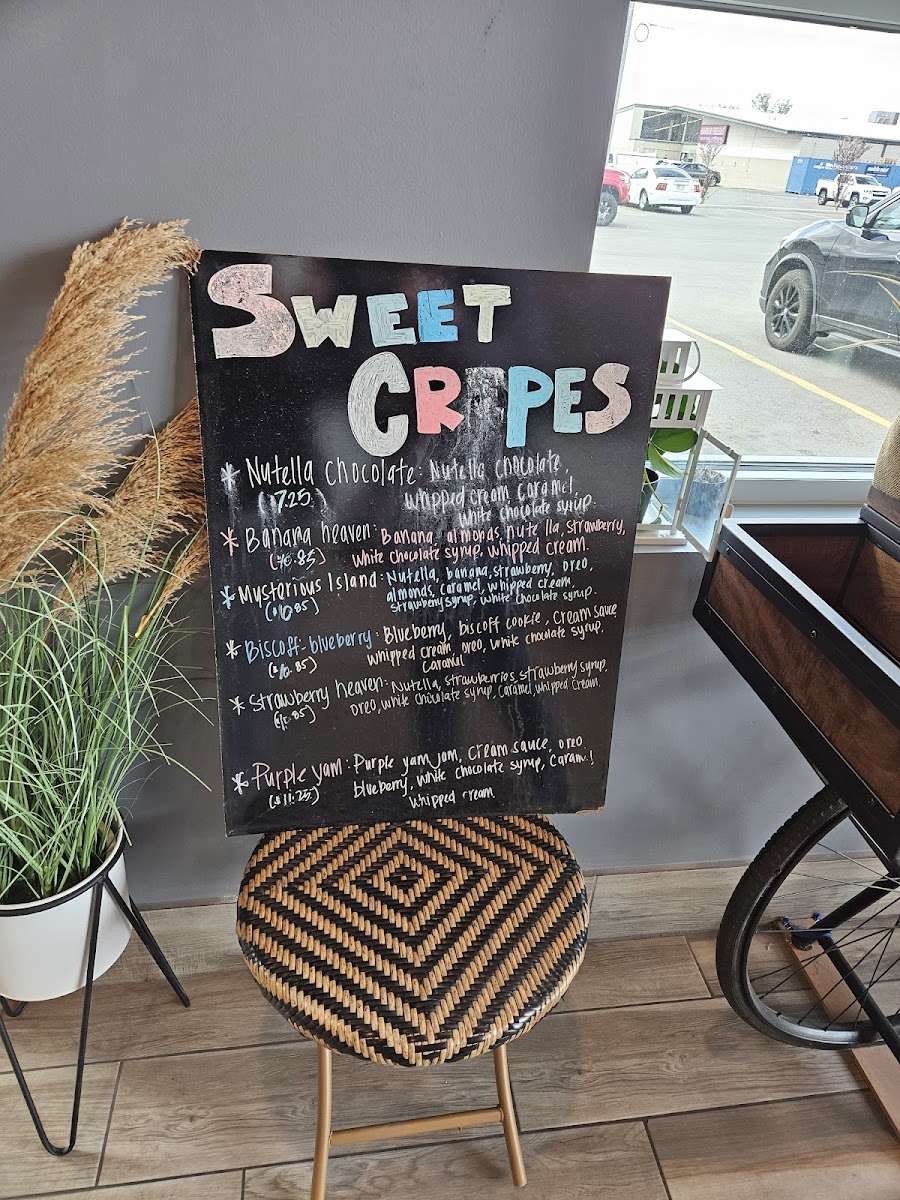 SWEET
CREPES
* Nutella chocolate: Nutella chocolate,
($7.25) whipped cream, caramel,
white chocolate syrup.
* Banana heaven: Banana, almonds, nutella, strawberry,
white chocolate syrup, whipped cream.
* Mysterious Island: Nutella, banana, strawberry, oreo,
($10.85) almonds, caramel, whipped cream,
strawberry syrup, white chocolate syrup.
* Biscoff-blueberry: Blueberry, biscoff cookie, cream sauce
($10.85) whipped cream, oreo, white choulate syrup,
caramel
* Strawberry heaven: Nutella, strawberries, strawberry syrup,
($10.85) oreo, white chocolate syrup, caramel, whipped cream.
* Purple yam: Purple yam jam, cream sauce, oreo
($11.25) blueberry, white chocolate syrup, caramel
whipped cream